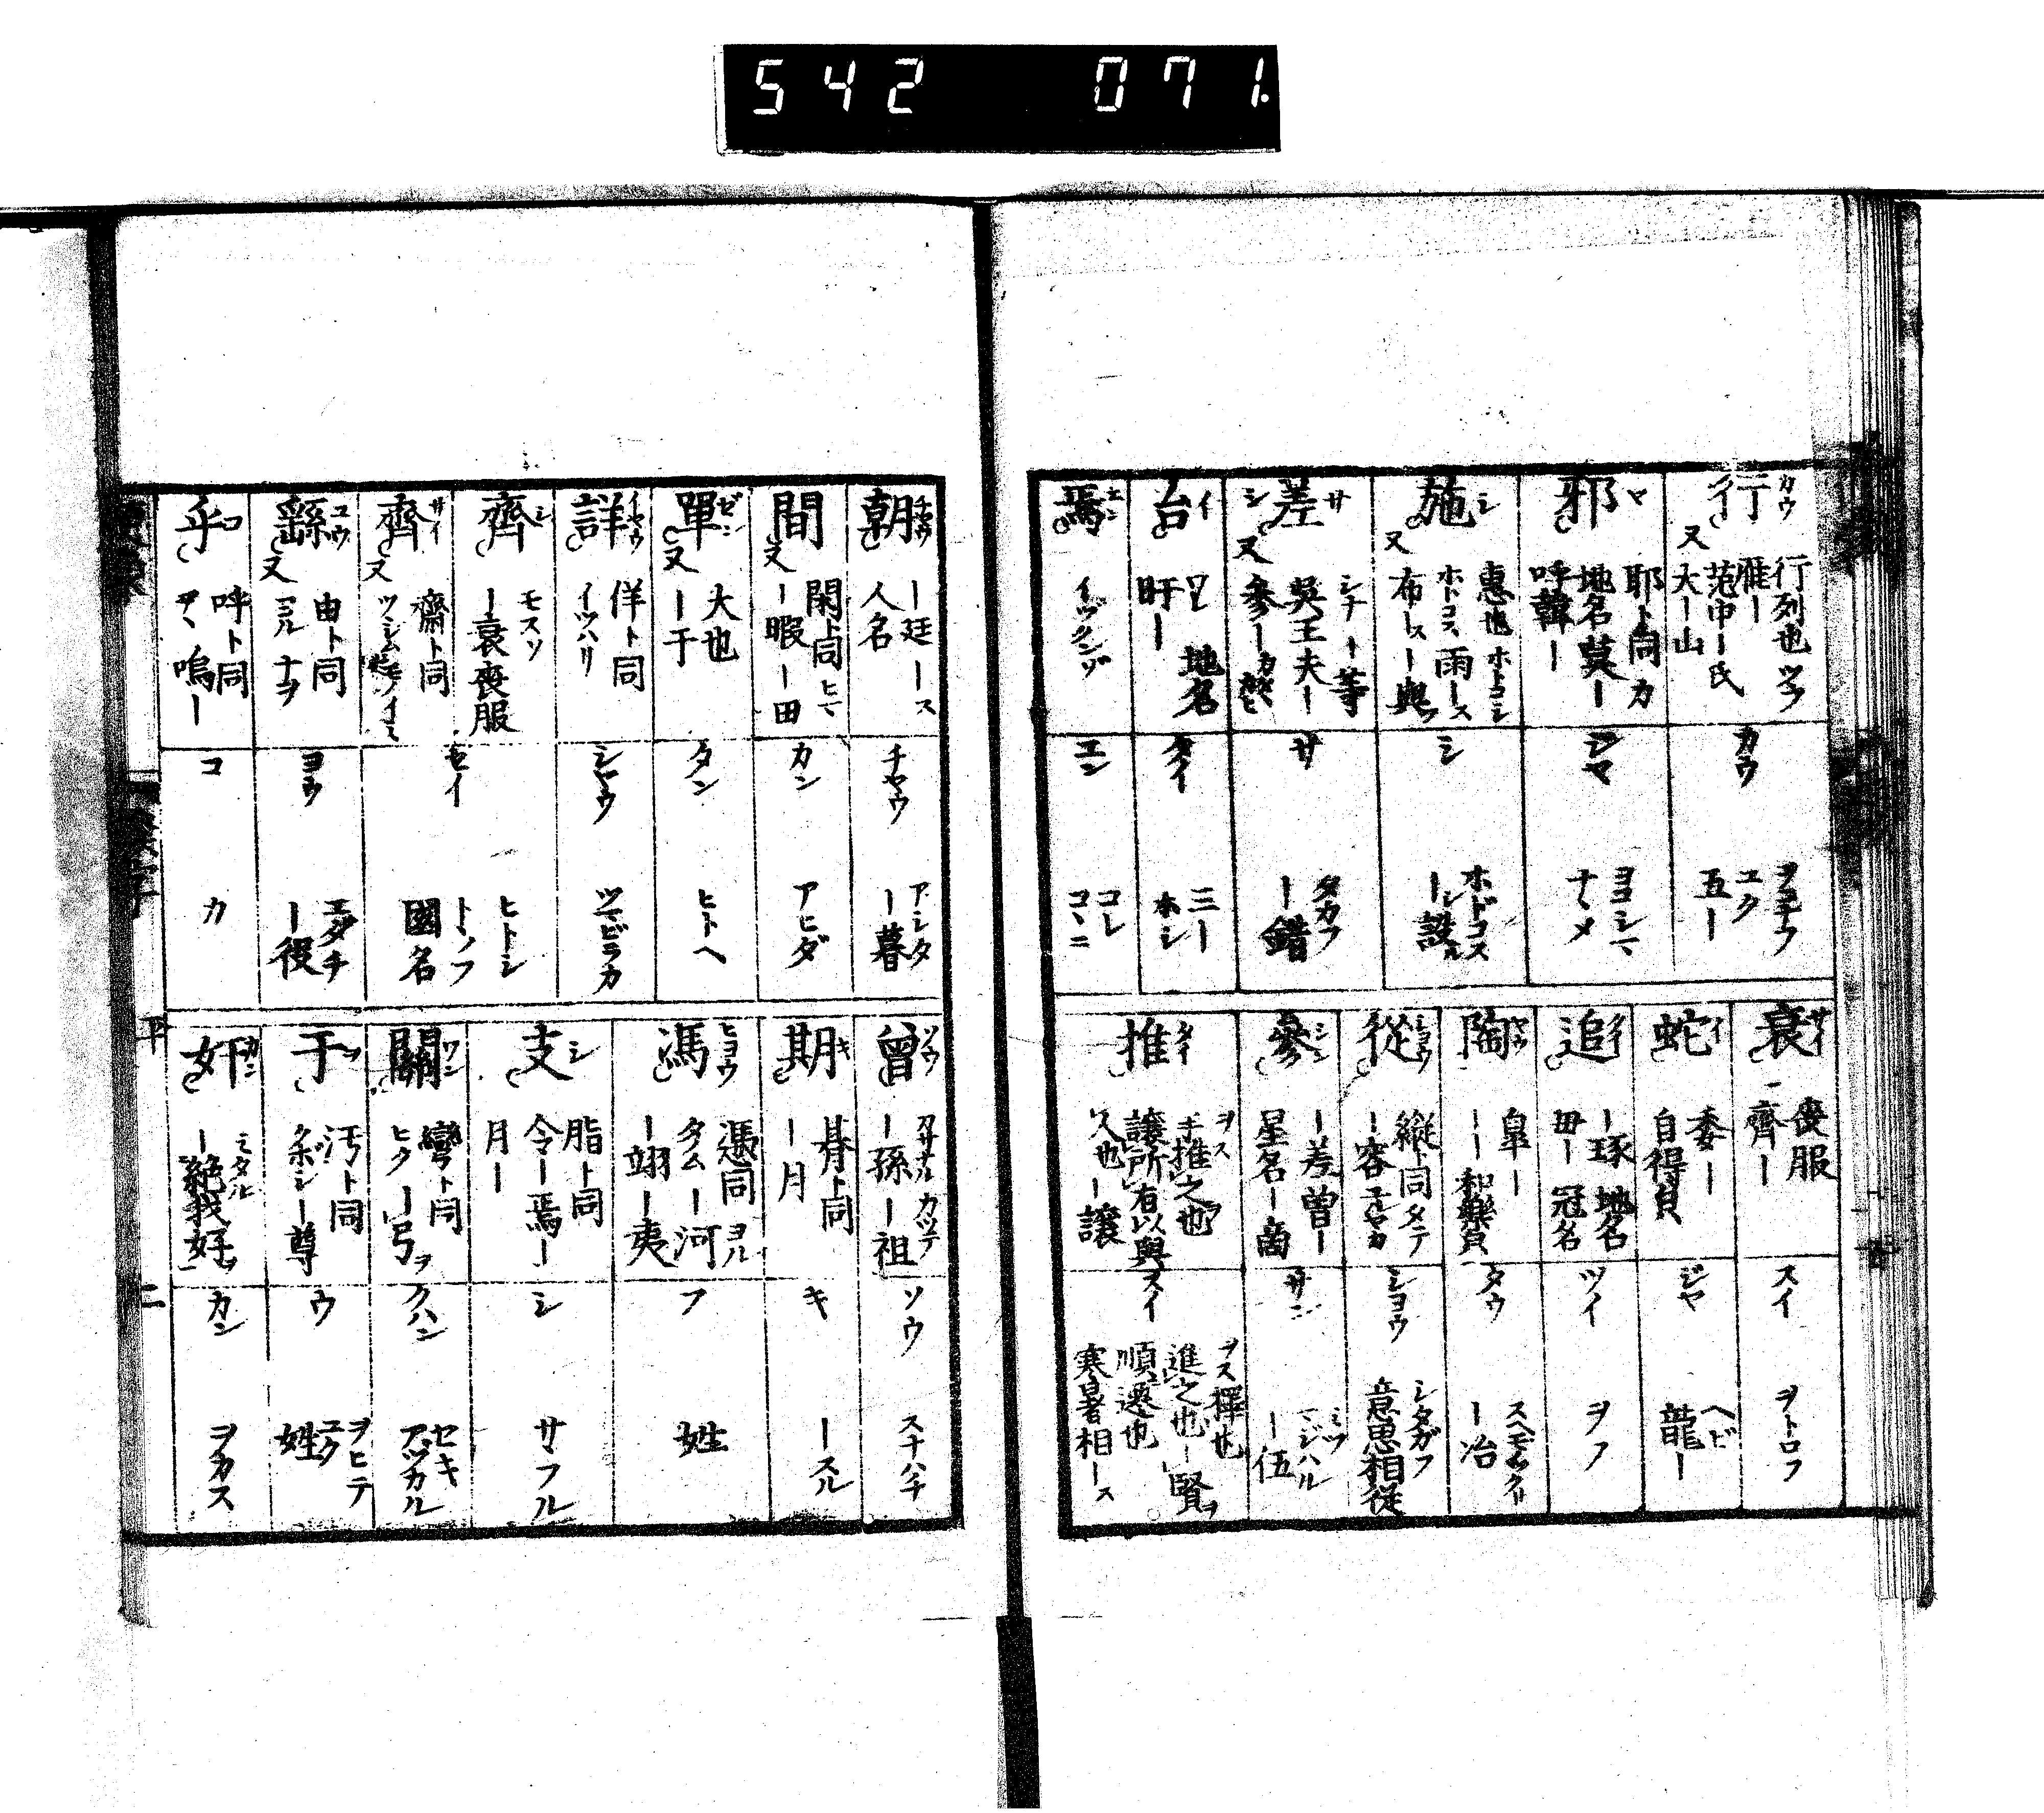 542 071.
行 カウ
行列也 ツラ
雁ー
范中ー氏
又 大ー山
カウ
ヲコナフ
ユク
五ー
邪 ヤ
耶ト同 カ
地名莫ー
呼韓ー
ジヤ
ヨコシマ
ナヽメ
施 シ
惠也 ホトコシ
ホトコス 雨ース
又 布ースー與
シ
ホドコス
ー設
差 サ シ
シナ ー等
呉王夫ー
又 參ー
サ
タカフ
ー錯
台 イ
ワレ 地名
盱ー
タイ
三ー
ホシ
焉 エン
イヅクンゾ
エン
コレ
コヽニ
衰 サイ
喪服
齊ー
スイ
ヲトロフ
蛇 イ
委ー
自得皃
ジヤ
ヘビ
龍ー
追 タイ
ー琢 地名
毋ー 冠名
ツイ
ヲフ
陶 ヤウ
皐ー
ーー和樂皃
タウ
ー冶
從 シヨウ
縦ト同 タテ
ー容
シヨウ
シタガフ
意思相從
參 シン
ー差 曽ー
星名ー商
サン
ミツ
マジハル
ー伍
推 タイ
ヲス
手推之也
讓所有以與
人也ー讓
スイ
ヲス 擇也
進之也ー賢ヲ
順遷也
寒暑相ース
朝 チヤウ
ー廷ース
人名
チヤウ
アシタ
ー暮
間
閑ト同 ヒマ
又 ー暇ー田
カン
アヒダ
單 ゼン
大也
又 ー于
タン
ヒトヘ
詳 イヤウ
佯ト同
イツハリ
シヤウ
ツマビラカ
齊 シ
モスソ
ー衰喪服
セイ
ヒトシ
トヽノフ
國名
齊 サイ
齋ト同
又 ツヽシム モノイミ
繇 ユウ
由ト同
又
ヨウ
エダチ
ー役
乎 コ
呼ト同
アヽ 嗚ー
コ
カ
曾 ソウ
カサナル カツテ
ー孫ー祖
ソウ
スナハチ
期 キ
朞ト同
ー月
キ
ースル
馮 ヒヨウ
憑同 ヨル
タノムー河
ー翊ー夷
フ
姓
支 シ
脂ト同
令ー焉ー
月ー
シ
サヽフル
關 ワン
彎ト同
ヒクー弓ヲ
クハン
セキ
アヅカル
于 ヲ
汚ト同
クボシー尊
ウ
ヲヒテ
ユク
姓
奸 カン
ミタル
ー絶我好ヲ
カン
ヲカス
平
二